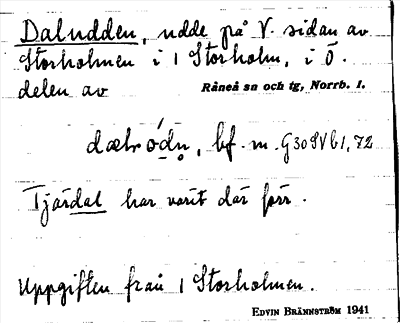 Daludden, udde på V. sidan av
Storholmen i 1 Storholm, i Ö.
delen av Råneå sn och tg, Norrb. l.
bf. m. G30SVb1,72
Tjärdal har varit där förr.
Uppgiften från 1 Storholmen.
EDVIN BRÄNNSTRÖM 1941